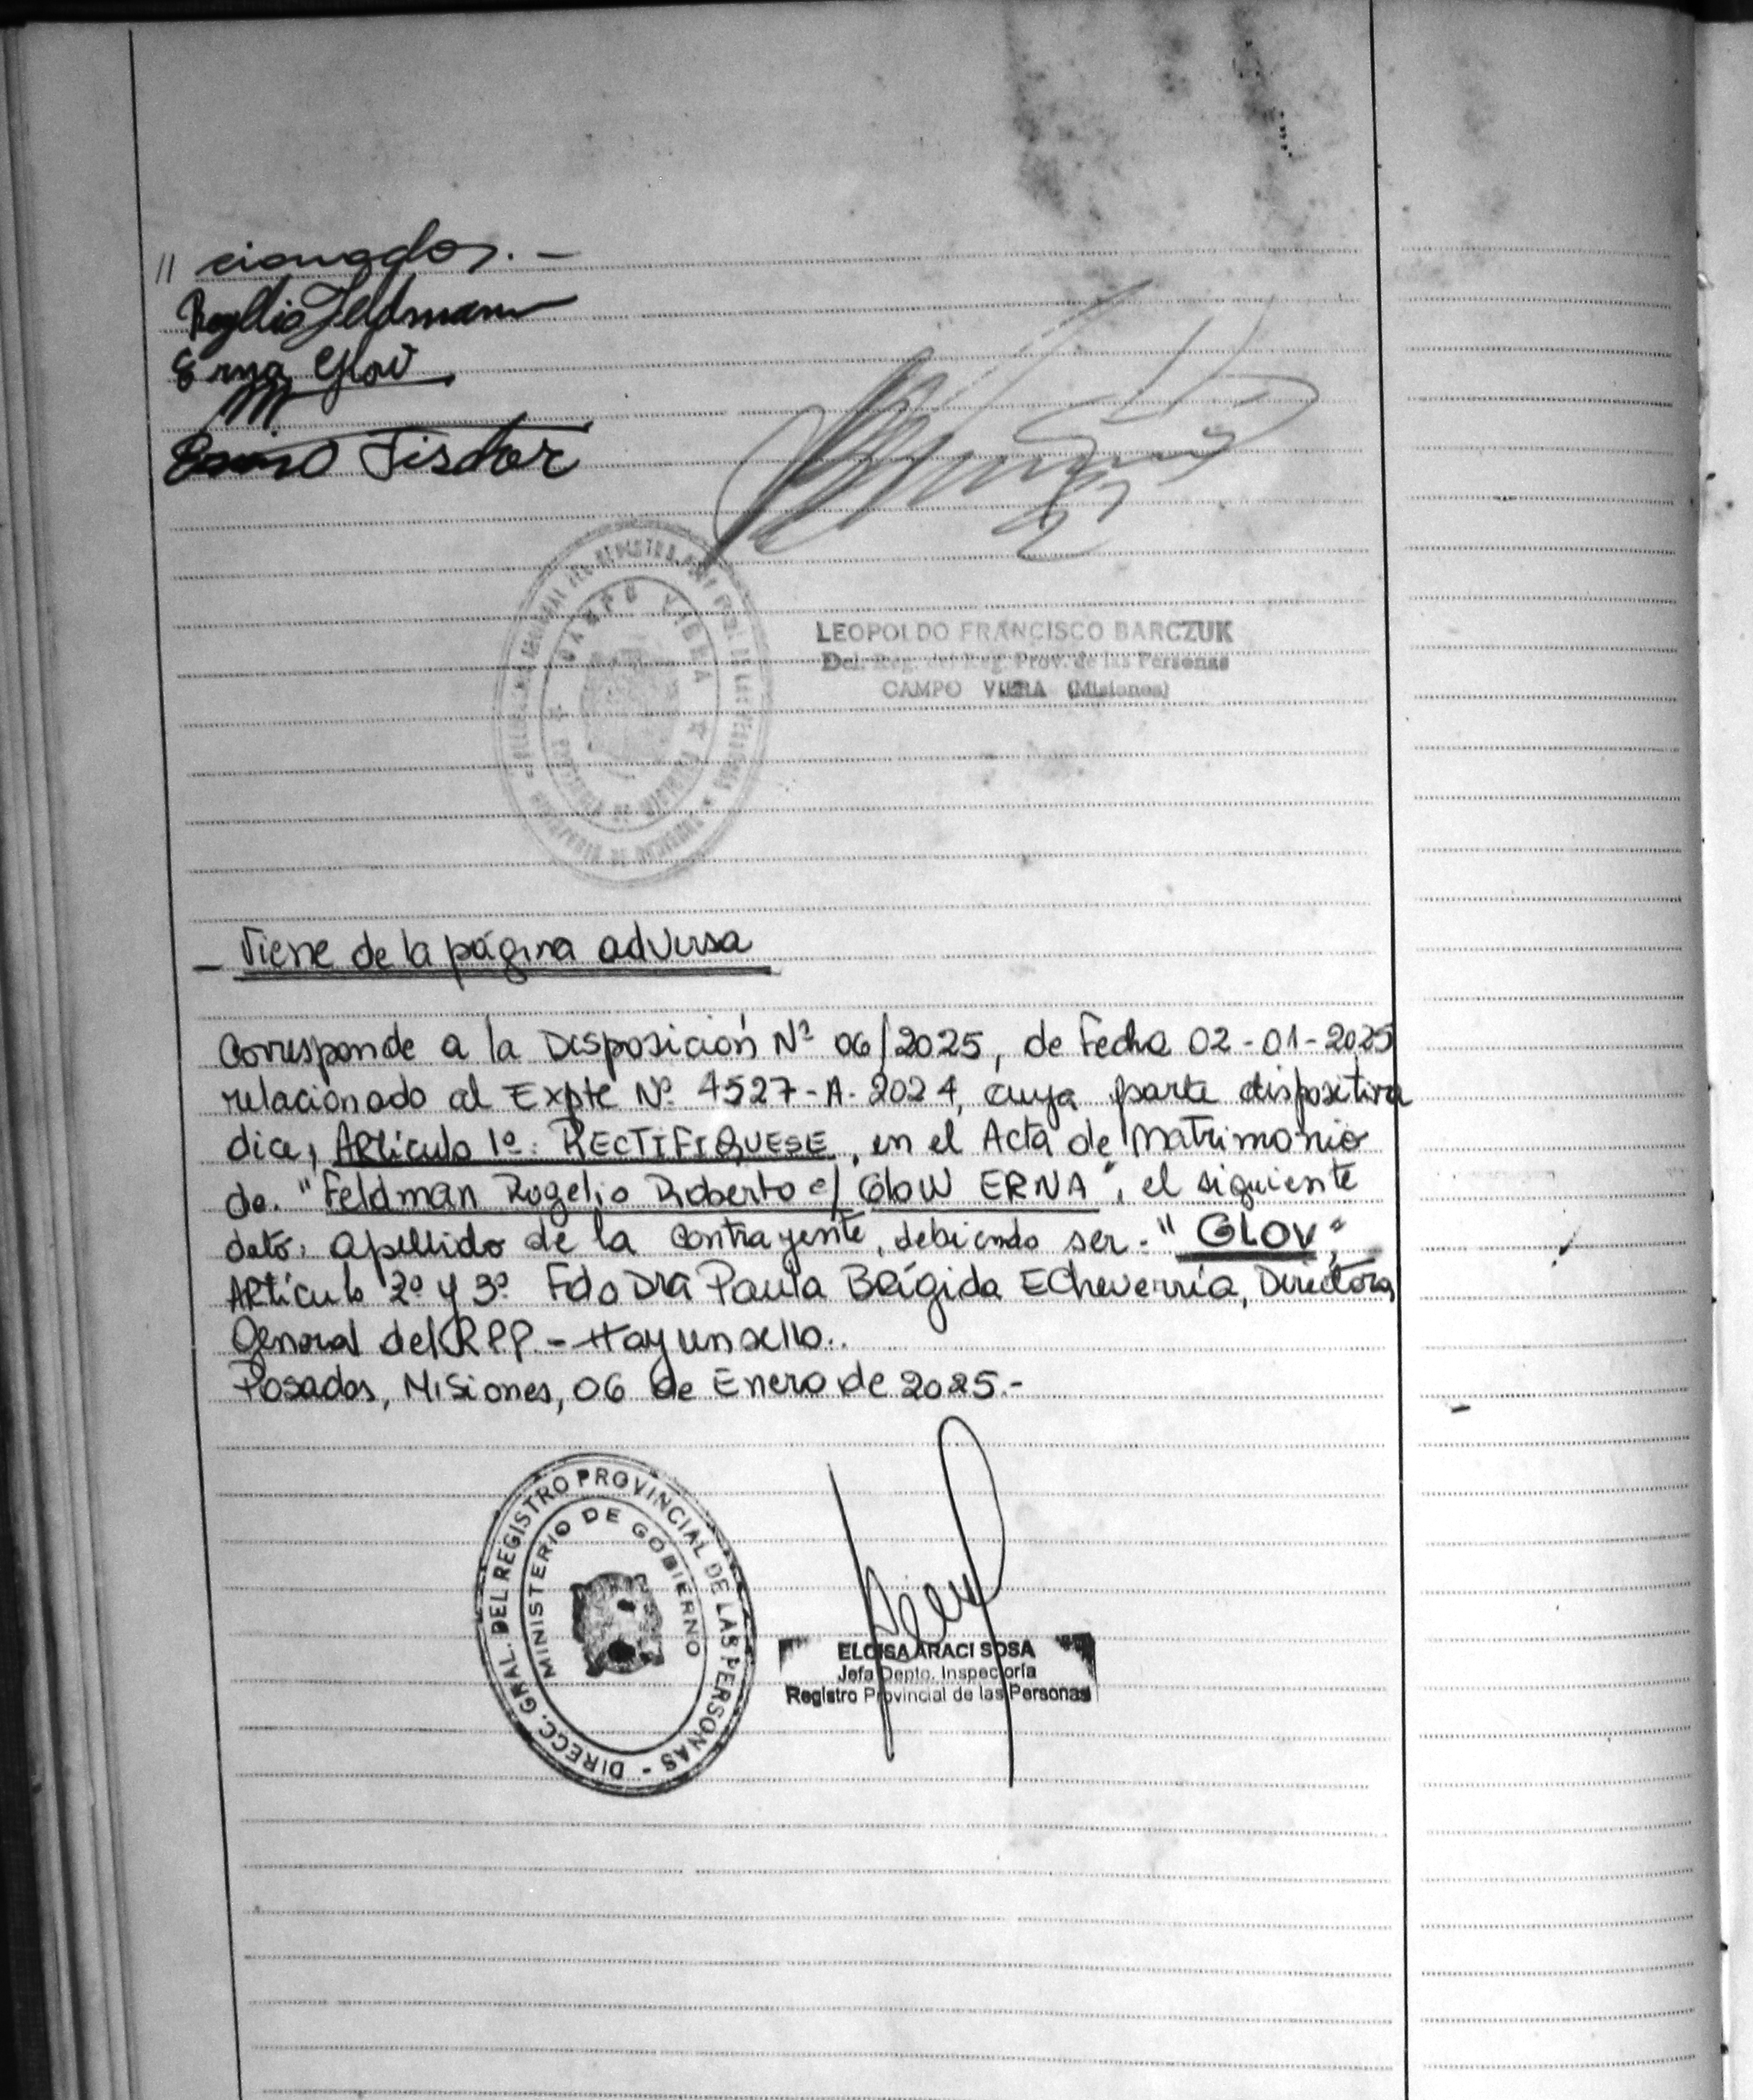 // cionados. -
Rogelio Feldmann
Erna Glov
Fischer
LEOPOLDO FRANCISCO BARCZUK
Del. Reg. del Reg. Prov. de las Personas
CAMPO VIERA (Misiones)
CAMPO VIERA
- Viene de la página adversa
Corresponde a la Disposición Nº 06/2025, de Fecha 02-01-2025
relacionado al Expte Nº 4527-A-2024, cuya parte dispositiva
dice, Artículo 1º: RECTIFIQUESE, en el Acta de Matrimonio
de. "Feldman Rogelio Roberto c/ Glow ERNA", el siguiente
dato: apellido de la contrayente, debiendo ser - "GLOV",
Artículo 2º y 3º Fdo Dra Paula Brígida Echeverría, Directora
General del RPP. - Hay un sello..
Posadas, Misiones, 06 de Enero de 2025.-
DIRECC. GRAL. DEL REGISTRO PROVINCIAL DE LAS PERSONAS -
MINISTERIO DE GOBIERNO
ELOISA ARACI SOSA
Jefa Depto. Inspectoría
Registro Provincial de las Personas